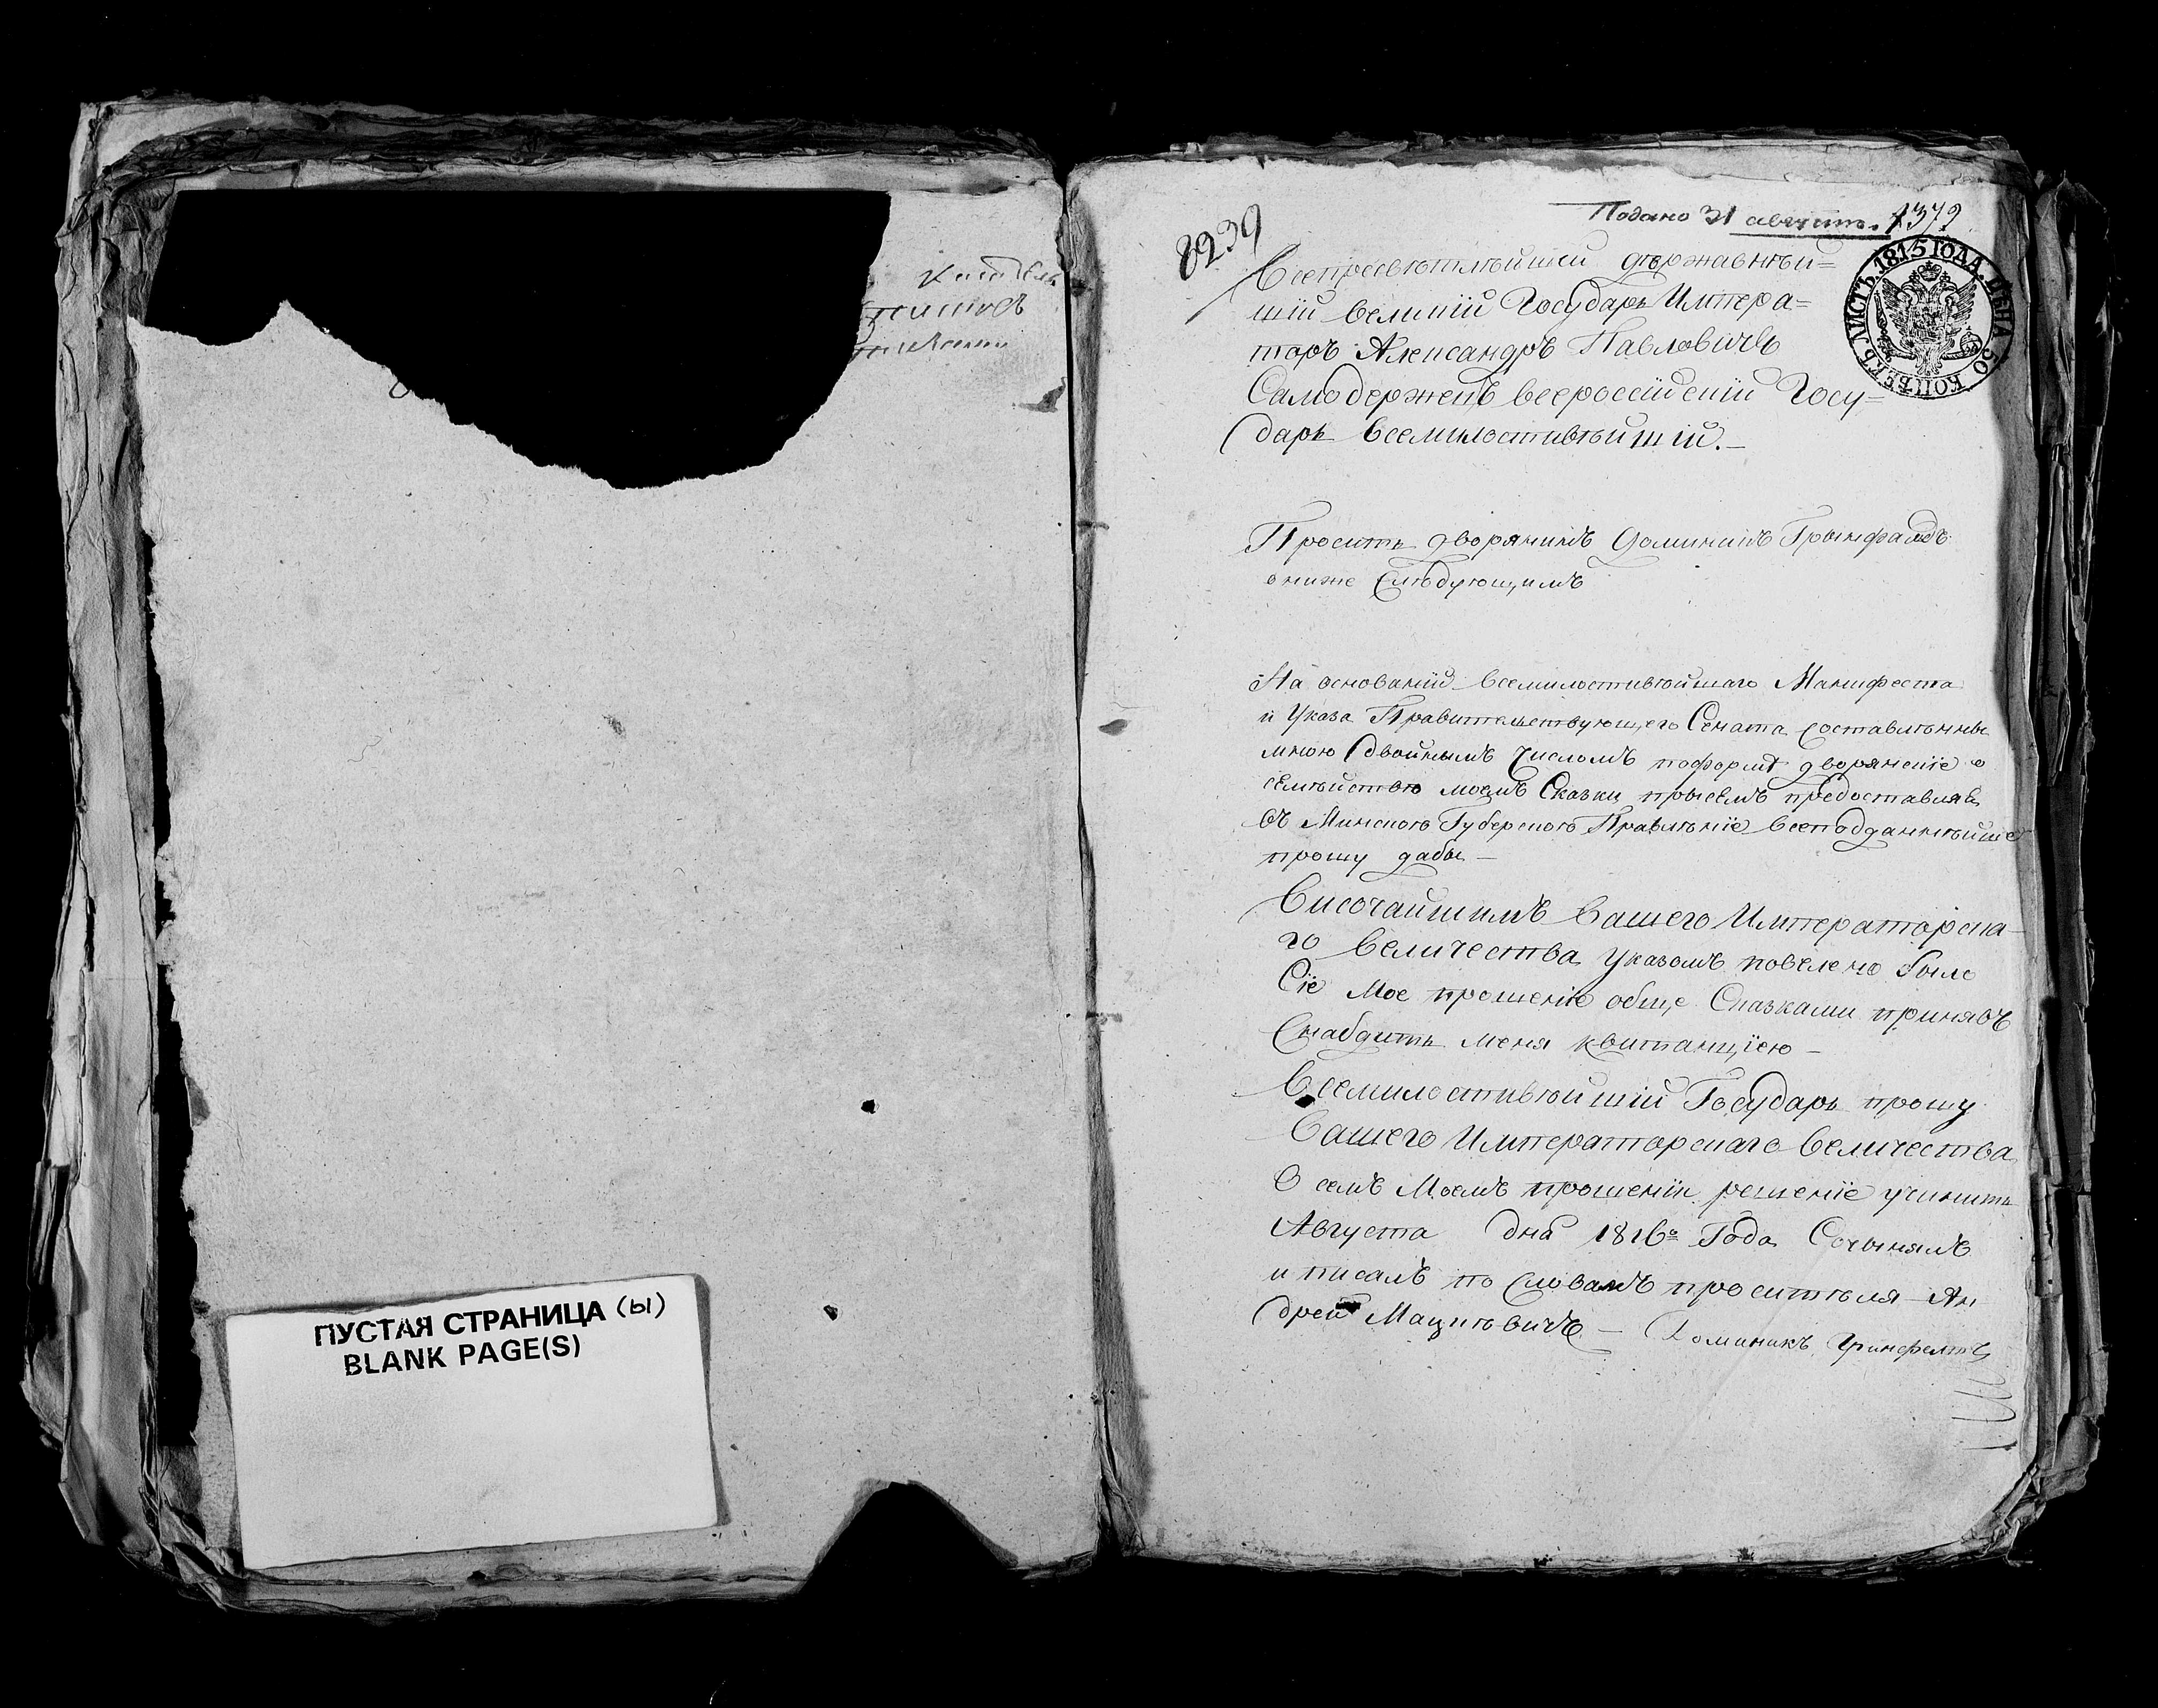 ПУСТАЯ СТРАНИЦА (ы)
BLANK PAGE(S)
8239
Подано 31 августа. 1379
ЛИСТЪ. 1815 ГОДА. ЦѢНА 50 КОПѢЕКЪ
Всепресвѣтлѣйшей державнѣй=
шій великій Государь Импера=
торъ Александръ Павловичъ
Самодержецъ всероссійскій Госу=
дарь всемилостивѣйшій. —
Просить дворянинъ Доминикъ Грынфалдъ
о ниже слѣдующимъ
На основаніи всемилостивѣйшаго Манифеста
и Указа Правительствующего Сената составлѣнные
мною двойнымъ числомъ поформѣ дворянские о
сѣмѣйствѣ моемъ Сказки присемъ предоставляя
въ Минского Губерского Правлѣніе всеподданнѣйше
прошу дабы —
Височайшимъ Вашего Императорска
го Величества указомъ повелено было
Сіе мое прошеніе обще Сказками принявъ
Снабдить меня квитанціею —
Всемилостивѣйшій Государь прошу
Вашего Императорскаго Величества
О семъ моемъ прошеніи решеніе учинить
Августа дня 1816го Года Сочинялъ
и писалъ по словамъ просителя Ан
дрей Мацкѣвичъ — Доминикъ Гринфелтъ